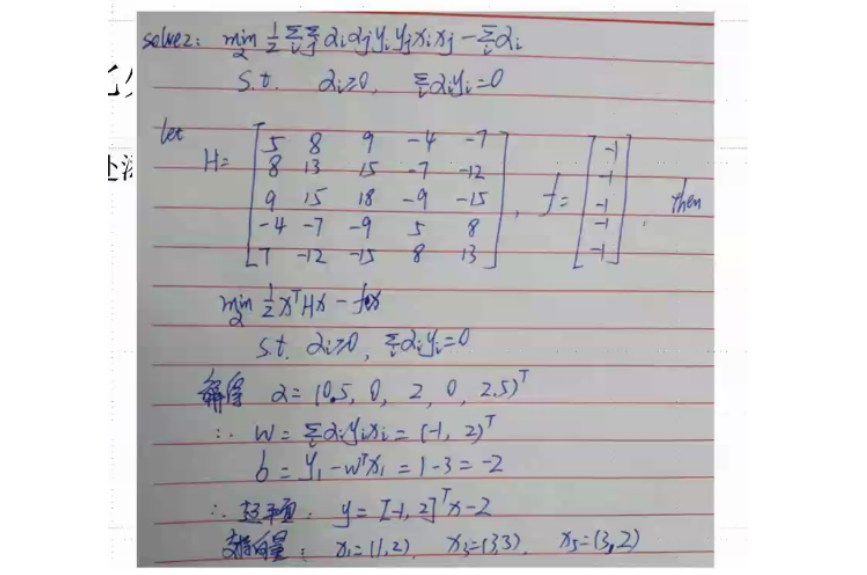 solve2: min 1/2 Σ_i Σ_j αiαjyiyjxixj − Σ_i αi
α
s.t. αi≥0, Σ_i αiyi=0
let
H= [5 8 9 -4 -7
8 13 15 -7 -12
9 15 18 -9 -15
-4 -7 -9 5 8
7 -12 -15 8 13], f= [-1
-1
-1
-1
-1], then
min 1/2 x^T H x − f x
α
s.t. αi≥0, Σ_i αiyi=0
解得 α= (0.5, 0, 2, 0, 2.5)^T
∴ w= Σ_i αiyixi = (-1, 2)^T
b= y1 − w^T x1 = 1-3 = -2
∴ 超平面: y= [-1, 2]^T x-2
支持向量: x1=(1,2) x3=(3,3). x5=(3,2)